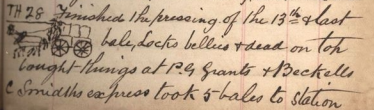 TH 28 Finished the pressing of the 13th & last
bale, Locks bellies & dead on top
bought things at P.G Grants & Becketts
C Smidths express took 5 bales to station